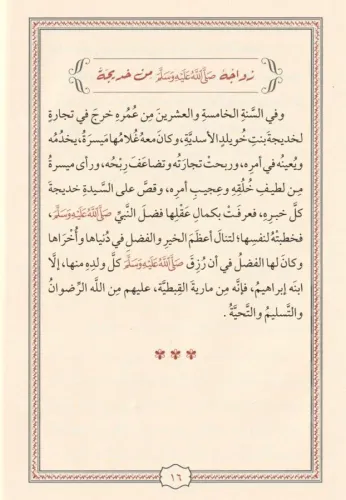 زواجُهُ ﷺ من خديجة
وفي السَّنةِ الخامسةِ والعشرينَ مِن عُمُرِه خرجَ في تجارةٍ
لخديجةَ بنتِ خُويلدٍ الأسديَّةِ، وكانَ معه غُلامُها ميسرَةُ، يخدُمُه
ويُعينُه في أمرِه، وربحتْ تجارَتُه وتضاعَفَ رِبْحُه، ورأى ميسرةُ
مِن لطيفِ خُلُقِه وعجيبِ أمرِه، وقصَّ على السَّيدةِ خديجةَ
كلَّ خبرِه، فعرفَتْ بكمالِ عَقْلِها فضلَ النَّبيِّ ﷺ،
فخطبتْه لنفسِها؛ لتنالَ أعظَمَ الخيرِ والفضلِ في دُنياها وأُخْرَاها
وكانَ لها الفضلُ في أن رُزِقَ ﷺ كلَّ ولدِه منها، إلَّا
ابنَه إبراهيمَ، فإنَّه مِن ماريةَ القِبطيَّةِ، عليهم مِن اللَّه الرِّضوانُ
والتَّسليمُ والتَّحيَّةُ .
١٦